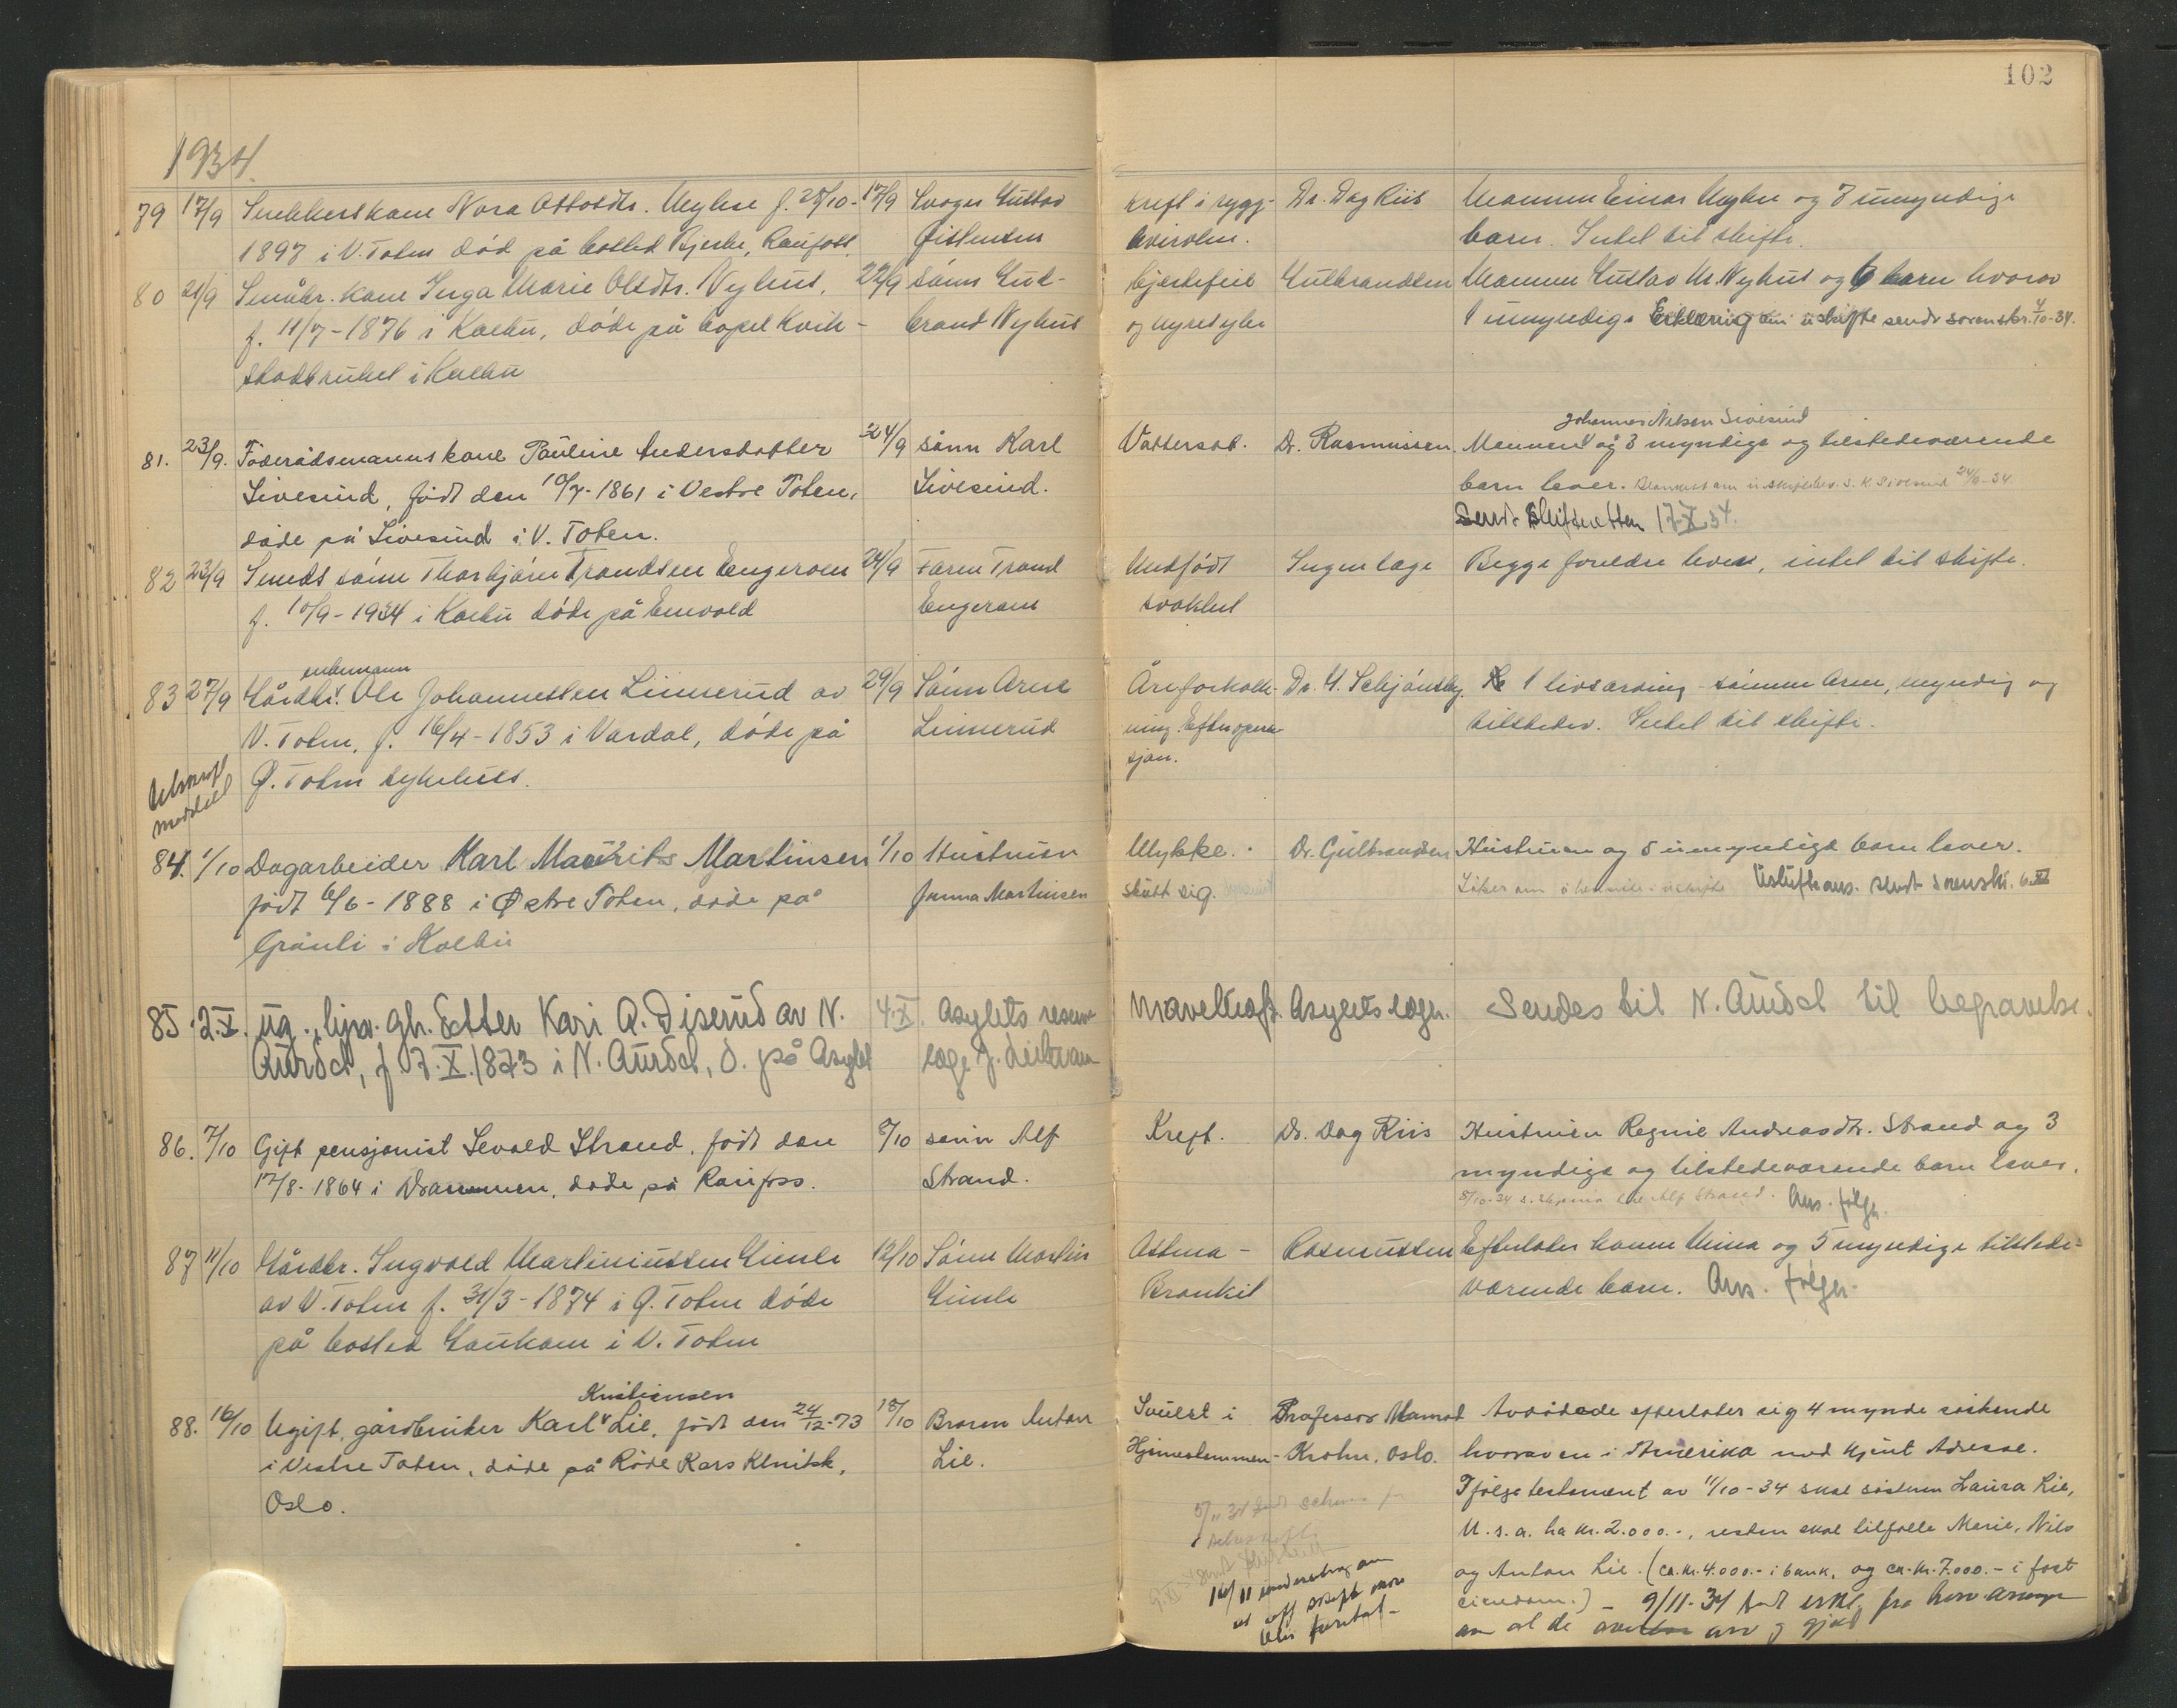 102
1934.
79 17/9 Snekkerskone Nora Ottosdtr. Myhre f. 25/10- 17/9 Svoger Gustav
1897 i V. Toten død på bosted Bjerke, Raufoss. Øistensen
kreft i rygg- Dr. Dag Riis Mannen Einar Myhre og 7 umyndige
hvirvlen. barn. Intet til skifte.
80 21/9 Småbr. kone Inga Marie Olsdtr. Nyhus, 22/9 sønn Gud-
f. 11/7-1876 i Kolbu, døde på bopel Kvik- brand Nyhus
stadbruket i Kolbu
hjertefeil Gulbrandsen Mannen Gustav M. Nyhus og 6 barn hvorav
og nyresyke 1 umyndig. Erklæring om uskifte sendt sorenskr. 4/10-34.
81. 23/9. Føderådsmannskone Pauline Andersdatter 24/9 sønn Karl
Sivesind, født den 10/7-1861 i Vestre Toten, Sivesind.
døde på Sivesind i V. Toten.
Johannes Nilsen Sivesind
Vattersot. Dr. Rasmussen. Mannen og 3 myndige og tilstedeværende
barn lever. S. K. Sivesind 24/9-34
Sendt skifteretten 17.X.34.
82 23/9 Smeds sønn Thorbjørn Trondsen Engeroen 24/9 Faren Trond
f. 10/9-1934 i Kolbu døde på Enevold Engeroen
Medfødt Ingen læge Begge foreldre lever, intet til skifte.
svakhet
enkemann
83 27/9 Gårdbr. Ole Johannessen Linnerud av 29/9 Sønn Arne
V. Toten, f. 16/4-1853 i Vardal, døde på Linnerud
Ø. Toten sykehus.
Åreforkalk- Dr. U. Schjønsby. 1 livsarving - sønnen Arne, myndig og
ning. Efter opera- tilstedev. Intet til skifte.
sjon.
84. 1/10 Dagarbeider Karl Mauritz Martinsen 1/10 Hustruen
født 6/6-1888 i Østre Toten, døde på Janna Martinsen
Grånli i Kolbu
Ulykke. Dr. Gulbrandsen Hustruen og 5 umyndige barn lever.
skutt sig. sendt sorenskr. 6.XI
85. 2.X. ug., hjv. gh. datter Kari A. Diserud av N. 4.X. Asylets reserve
Aurdal, f 7.X.1873 i N. Aurdal, d. på Asylet læge J.
Mavekreft. Asylets læge. Sendes til N. Aurdal til begravelse.
86. 7/10 Gift pensjonist Sevald Strand, født den 8/10 sønn Alf
17/8-1864 i Drammen, døde på Raufoss. Strand.
Kreft. Dr. Dag Riis Hustruen Regine Andreasdtr. Strand og 3
myndige og tilstedeværende barn lever.
8/10-34 Alf Strand. Ans. følger.
87 11/10 Gårdbr. Ingvald Martiniussen Gimle 12/10 Sønn Martin
av V. Toten f. 31/3-1874 i Ø. Toten døde Gimle
på bosted Gaukom i V. Toten
Astma - Rasmussen Efterlater konen Mina og 5 myndige tilstede-
Bronkit værende barn. Ans. følger.
Kristiansen
88. 16/10 Ugift, gårdbruker Karl Lie, født den 24/12-73 18/10 Broren Anton
i Vestre Toten, døde på Røde Kors Klinikk, Lie.
Oslo.
Svulst i Professor Monrad Avdødede efterlater sig 4 mynde søskende
Hjernestammen - Krohn, Oslo. hvorav en i Amerika med kjent Adresse.
Ifølge testament av 11/10-34 skal søsteren Laura Lie,
U.s.a. ha kr. 2.000.-, resten skal tilfalle Marie, Nils
og Anton Lie. (ca. kr. 4.000.- i bank, og ca. kr. 7.000.- i fast
eiendom.) - 9/11-34 erkl. fra
om at de arv og gjeld